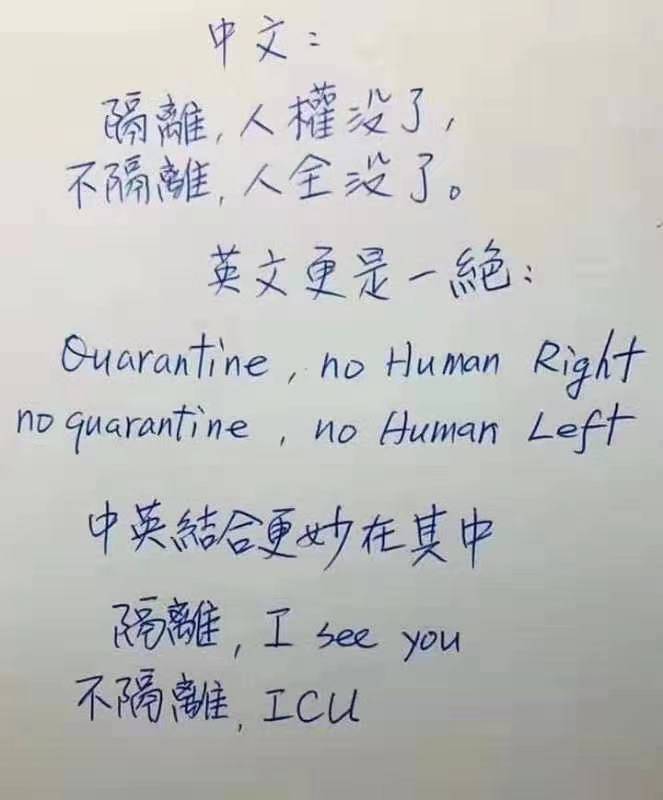 中文：
隔離，人權没了，
不隔離，人全没了。
英文更是一絕：
Quarantine, no Human Right
no quarantine, no Human Left
中英結合更妙在其中
隔離，I see you
不隔離，ICU